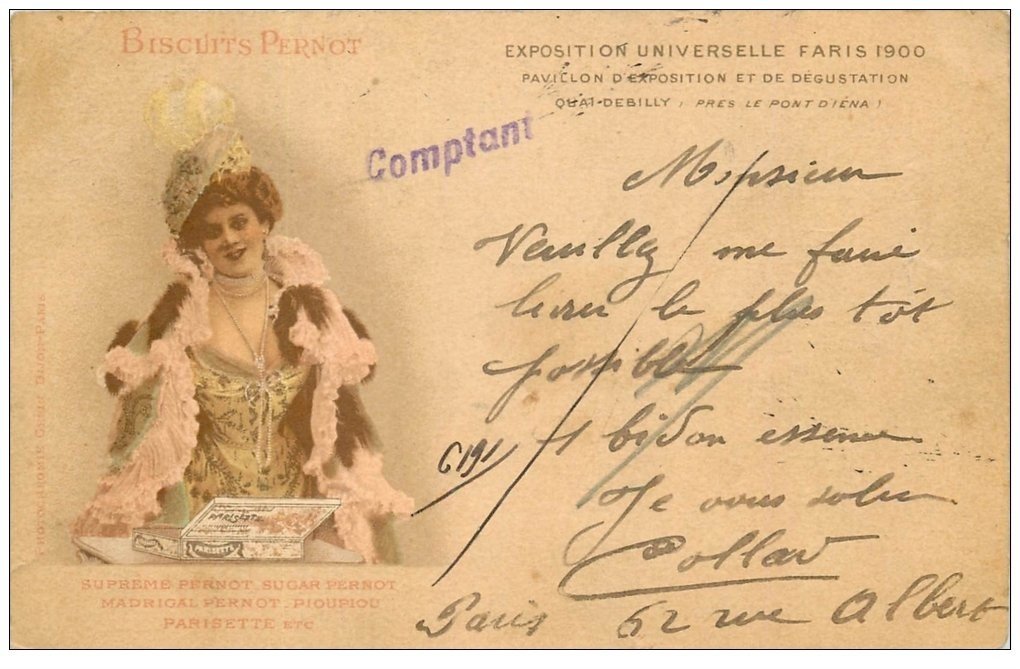 BISCUITS PERNOT
EXPOSITION UNIVERSELLE PARIS 1900
PAVILLON D'EXPOSITION ET DE DÉGUSTATION
QUAI DEBILLY ( PRÈS LE PONT D'IÉNA )
Comptant
Monsieur
Veuillez me faire
livrer le plus tôt
possible
1 bidon essence
6191
Je vous salue
Collar
Paris 62 rue Albert
PARISETTE
PARISETTE
SUPREME PERNOT. SUGAR PERNOT
MADRIGAL PERNOT. PIOUPIOU
PARISETTE ETC